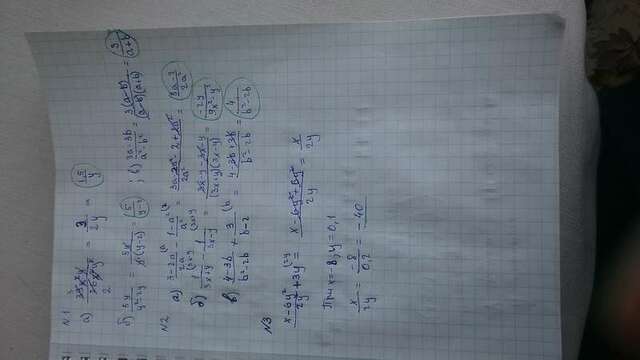 N1
а) = 3/2y = 1,5/y
б) 5y/y²-2y = 5y/y(y-2) = 5/y-2 ; в) 3a-3b/a²-b² = 3(a-b)/(a-b)(a+b) = 3/a+b
N2
а) 3-2a/2a - 1-a²/a² = 3a-2a²-2+2a²/2a² = 3a-2/2a²
б) 1/3x+y - 1/3x-y = 3x-y-3x-y/(3x+y)(3x-y) = -2y/9x²-y
в) 4-3b/b²-2b + 3/b-2 = 4-3b+3b/b²-2b = 4/b²-2b
N3
x-6y²/2y + 3y = x-6y²+6y²/2y = x/2y
При x=-8, y=0,1
x/2y = -8/0,2 = -40